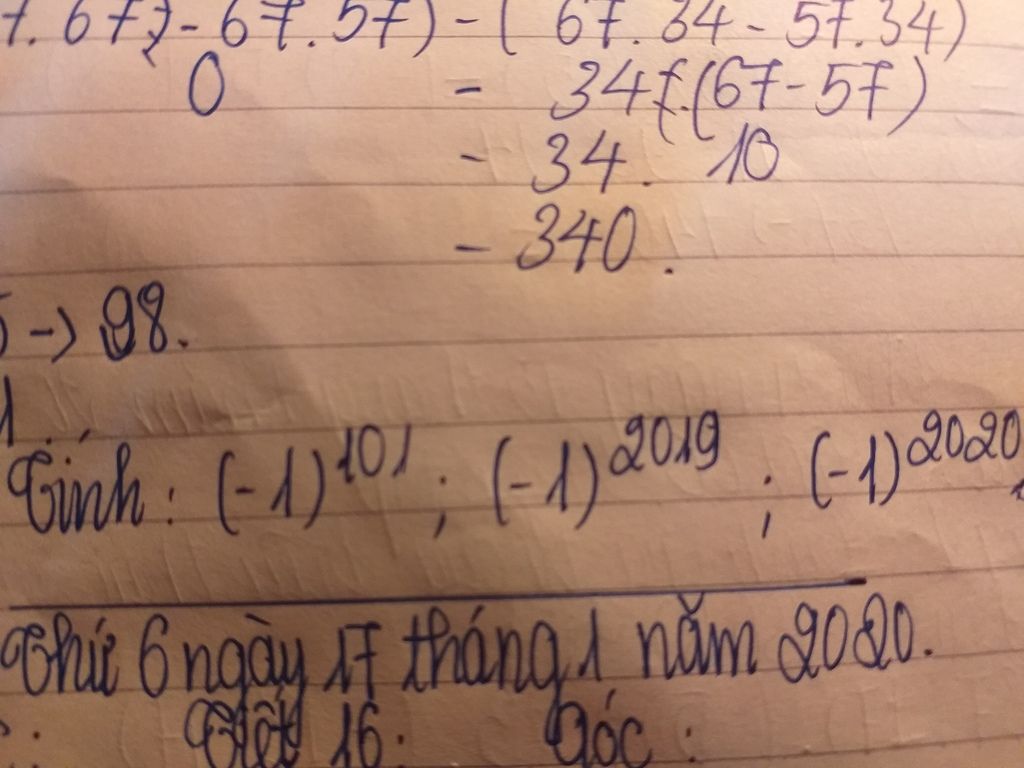 7.67) - 67.57) - ( 67.34 - 57.34)
0 - 34.(67-57)
- 34. 10
- 340.
5 -> 98.
1
Tính: (-1)^101 ; (-1)^2019 ; (-1)^2020
Thứ 6 ngày 17 tháng 1 năm 2020.
: Tiết 16: Góc :